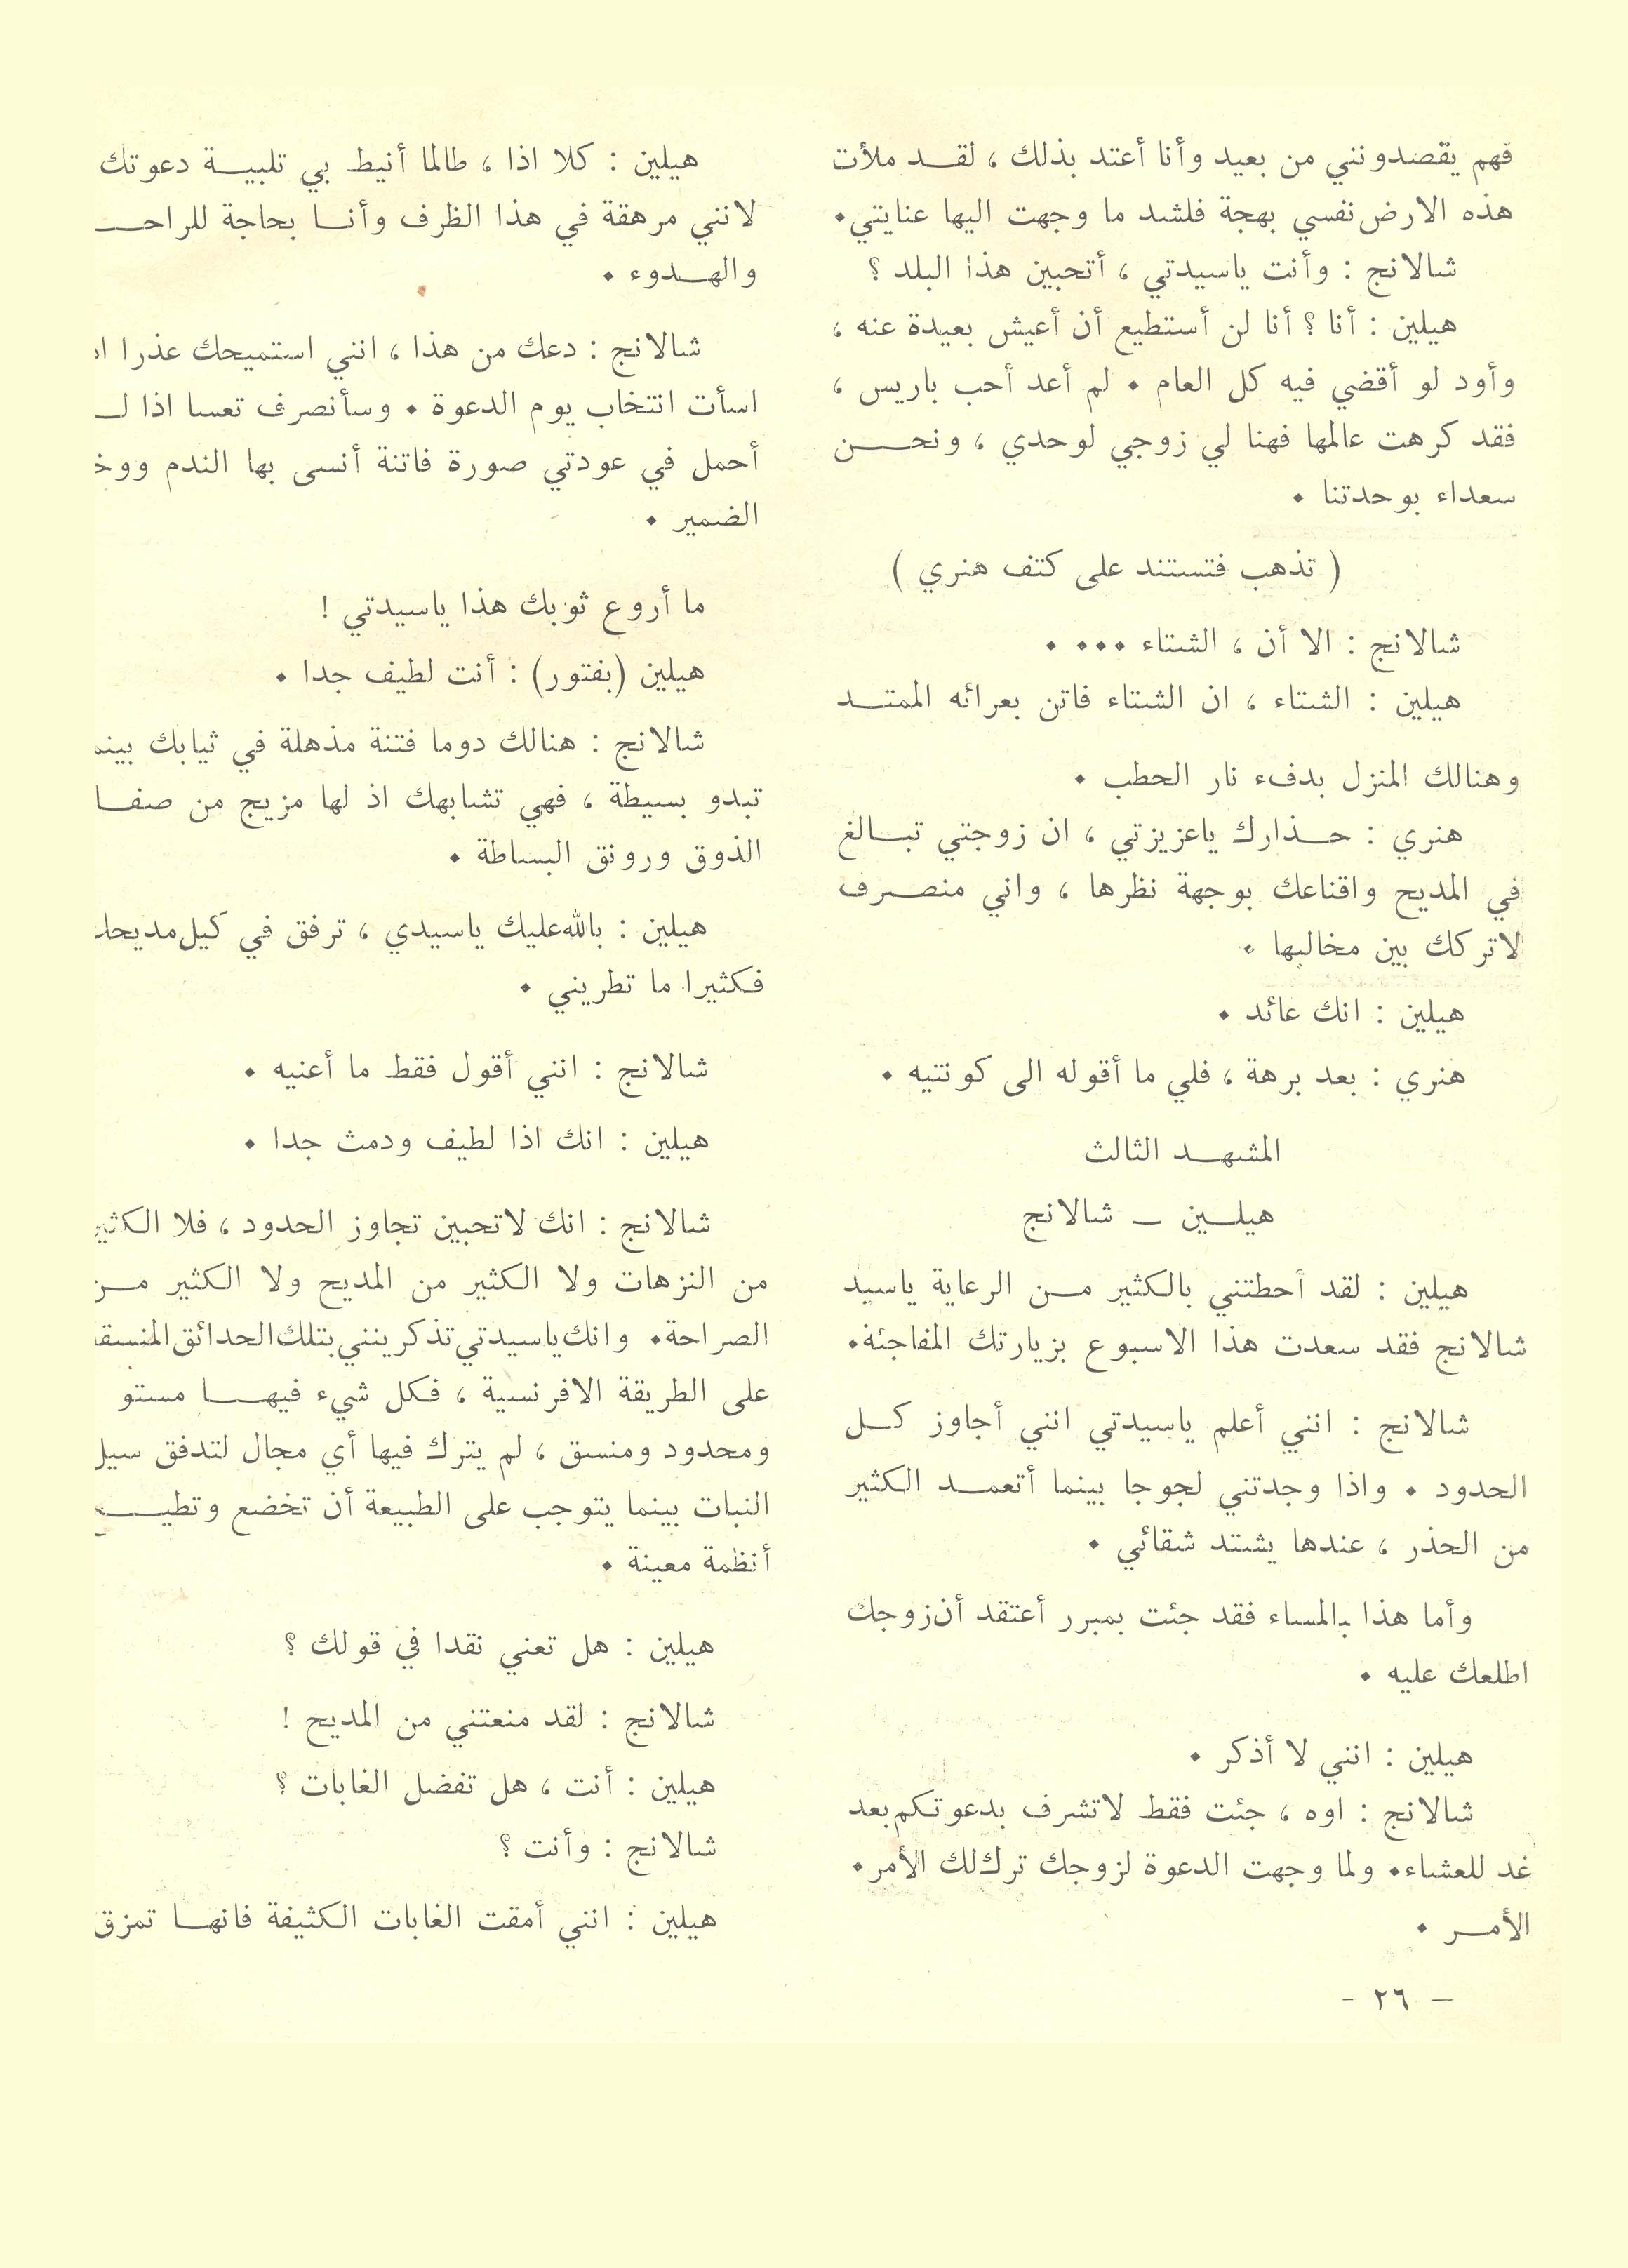 فهم يقصدونني من بعيد وأنا أعتد بذلك ، لقـد ملأت
هذه الارض نفسي بهجة فلشد ما وجهت اليها عنايتي.
شالانج : وأنت ياسيدتي ، أتحبين هذا البلد ؟
هيلين : أنا ؟ أنا لن أستطيع أن أعيش بعيدة عنه ،
وأود لو أقضي فيه كل العام . لم أعد أحب باريس ،
فقد كرهت عالمها فهنا لي زوجي لوحدي ، ونحـن
سعداء بوحدتنا .
( تذهب فتستند على كتف هنري )
شالانج : الا أن ، الشتاء ....
هيلين : الشتاء ، ان الشتاء فاتن بعرائه الممتـد
وهنالك المنزل بدفء نار الحطب .
هنري : حـذارك ياعزيزتي ، ان زوجتي تبـالغ
في المديح واقناعك بوجهة نظرها ، واني منصـرف
لاتركك بين مخالبها .
هيلين : انك عائد .
هنري : بعد برهة ، فلي ما أقوله الى كونتيه .
المشهـد الثالث
هيلـين ـ شالانج
هيلين : لقد أحطتني بالكثير مـن الرعاية ياسيد
شالانج فقد سعدت هذا الاسبوع بزيارتك المفاجئة.
شالانج : انني أعلم ياسيدتي انني أجاوز كـل
الحدود . واذا وجدتني لجوجا بينما أتعمـد الكثير
من الحذر ، عندها يشتد شقائي .
وأما هذا بالمساء فقد جئت بمبرر أعتقد أن زوجك
اطلعك عليه .
هيلين : انني لا أذكر .
شالانج : اوه ، جئت فقط لاتشرف بدعوتكم بعد
غد للعشاء. ولما وجهت الدعوة لزوجك ترك لك الأمر.
الأمـر .
هيلين : كلا اذا ، طالما أنيط بي تلبيـة دعوتك
لانني مرهقة في هذا الظرف وأنـا بحاجة للراحـ
والهـدوء .
شالانج : دعك من هذا ، انني استميحك عذرا ا
اسأت انتخاب يوم الدعوة . وسأنصرف تعسا اذا لـ
أحمل في عودتي صورة فاتنة أنسى بها الندم ووخ
الضمير .
ما أروع ثوبك هذا ياسيدتي !
هيلين (بفتور) : أنت لطيف جدا .
شالانج : هنالك دوما فتنة مذهلة في ثيابك بينم
تبدو بسيطة ، فهي تشابهك اذ لها مزيج من صفـا
الذوق ورونق البساطة .
هيلين : بالله عليك ياسيدي ، ترفق في كيل مديحك
فكثيرا ما تطريني .
شالانج : انني أقول فقط ما أعنيه .
هيلين : انك اذا لطيف ودمث جدا .
شالانج : انك لاتحبين تجاوز الحدود ، فلا الكثير
من النزهات ولا الكثير من المديح ولا الكثير مـن
الصراحة. وانك ياسيدتي تذكرينني بتلك الحدائق المنسقة
على الطريقة الافرنسية ، فكل شيء فيهـا مستو
ومحدود ومنسق ، لم يترك فيها أي مجال لتدفق سيل
النبات بينما يتوجب على الطبيعة أن تخضع وتطيـع
أنظمة معينة .
هيلين : هل تعني نقدا في قولك ؟
شالانج : لقد منعتني من المديح !
هيلين : أنت ، هل تفضل الغابات ؟
شالانج : وأنت ؟
هيلين : انني أمقت الغابات الكثيفة فانهـا تمزق
– ٢٦ -